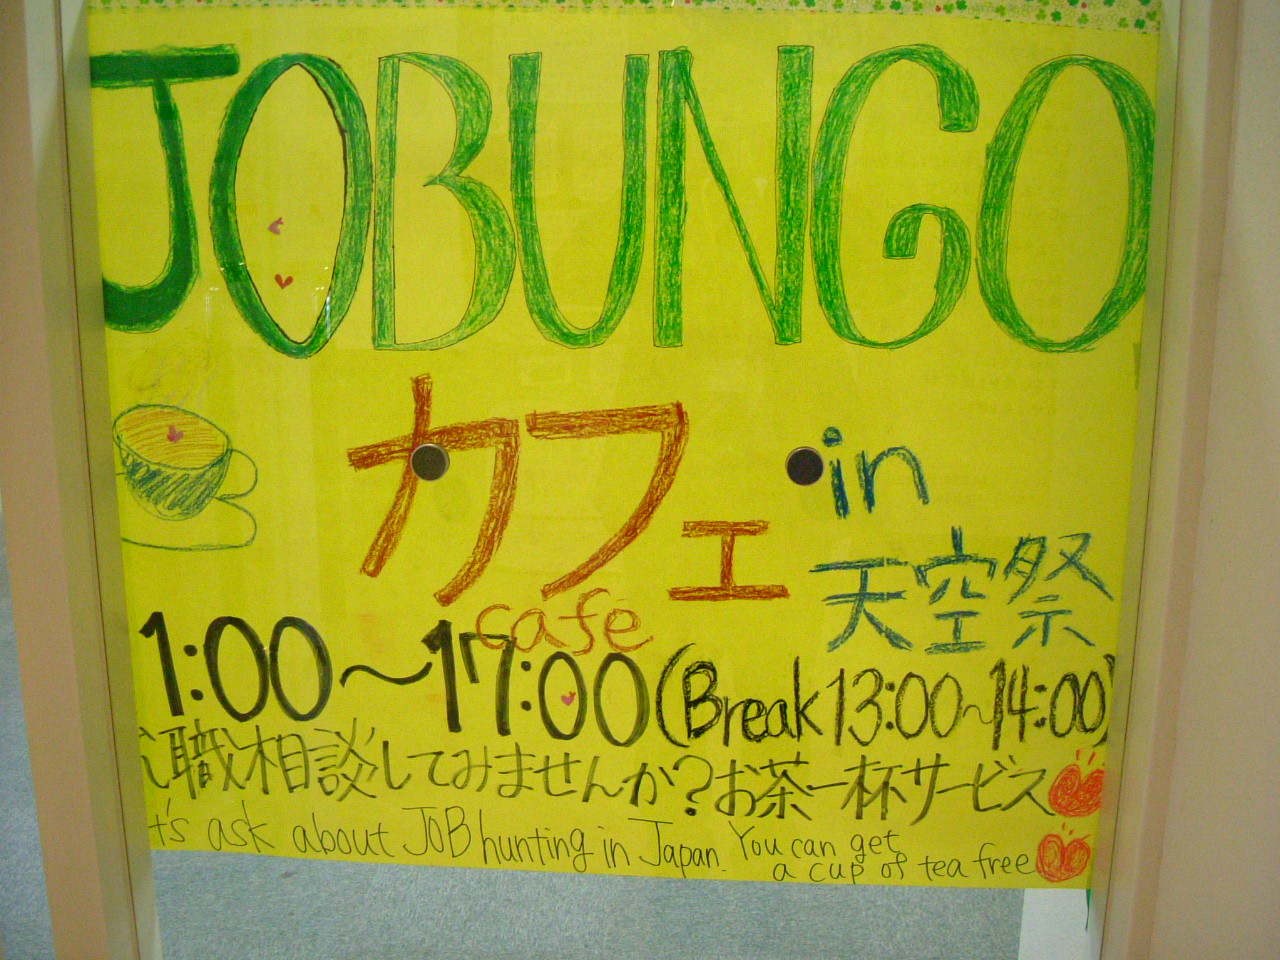 JOBUNGO
カフェ in
天空祭
cafe
1:00〜17:00 (Break 13:00〜14:00)
職相談してみませんか?お茶一杯サービス
t's ask about JOB hunting in Japan. You can get
a cup of tea free